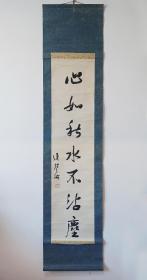 心如秋水不沾塵